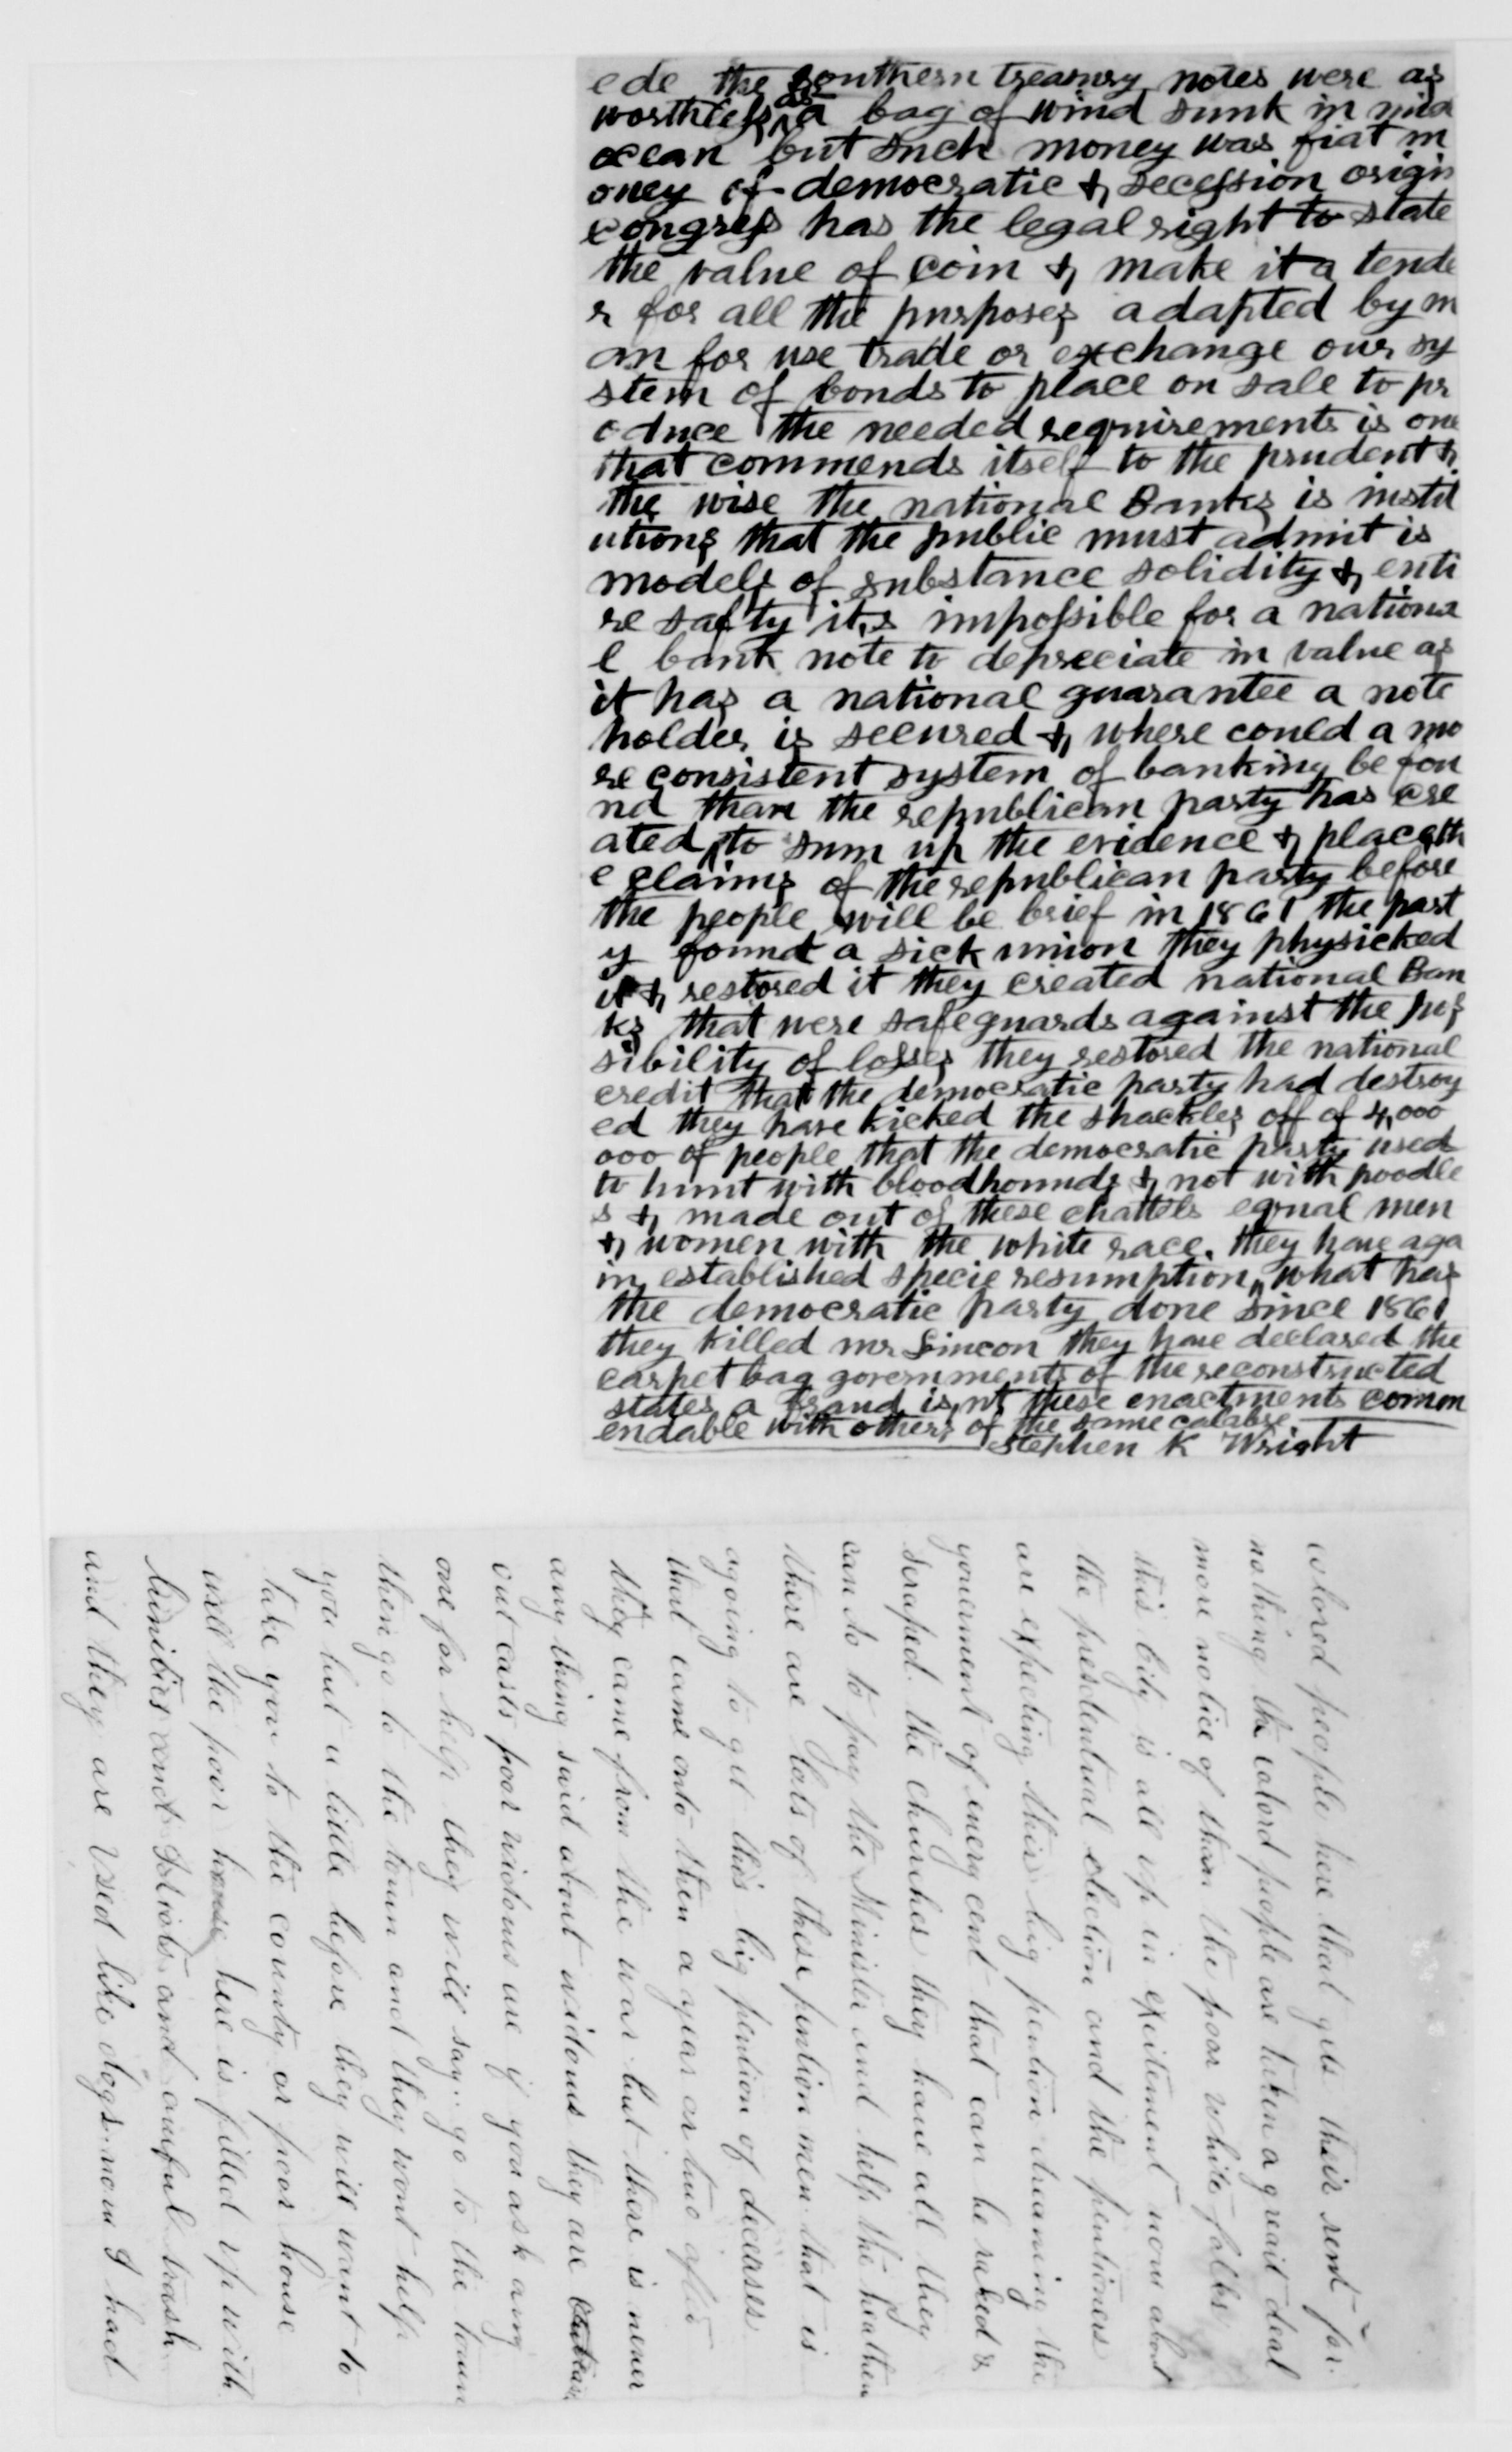 ede the southern treasury notes were as
worthless as a bag of wind sunk in mid
ocean but such money was fiat m
oney of democratic & secession origin
congress has the legal right to state
the value of coin & make it a tende
r for all the purposes adapted by m
an for use trade or exchange our sy
stem of bonds to place on sale to pr
oduce the needed requirements is one
that commends itself to the prudent &
the wise the national Banks is instit
utions that the public must admit is
models of substance solidity & enti
re safty it,s impossible for a nationa
l bank note to depreeciate in value as
it has a national guarantee a note
holder is secured & where could a mo
re consistent system of banking be fou
nd than the republican party has cre
ated, to sum up the evidence & place th
e claims of the republican party before
the people will be brief in 1861 the part
y found a sick union they physicked
it & restored it they created national Ban
ks that were safeguards against the pos
sibility of losses they restored the national
credit that the democratic party had destroy
ed they have kicked the shackles off of 4,000
000 of people that the democratic party used
to hunt with bloodhounds & not with poodle
s & made out of these chattels equal men
& women with the white race. they have aga
in established specie resumption, what has
the democratic party done since 1861
they killed mr Lincon they have declared the
carpet bag governments of the reconstructed
states a fraud is,nt these enactments comm
endable with others of the same calabre
Stephen K Wright
colored people here that gets their rent for
nothing the colord people are taken a great deal
more notice of than the poor white folks
this City is all up in exeitement now about
the presedentual election and the pentioners
are expecting their big pention dreaming the
government of every cent that can be raked &
scraped. the churches they have all they
can do to pay the Minister and help the heathen
there are lots of these pention men that is
agoing to get this big pention of deceases
that came onto them a year or two after
they came from the war but there is never
any thing said about widows they are
out casts poor widows are if you ask any
one for help they will say: go to the town
then go to the town and they wont help
you but a little before they will want to
take you to the county or poor house
well the poor house here is filled up with
lunitics and Idiots and awful trash
and they are used like dogs. now I had